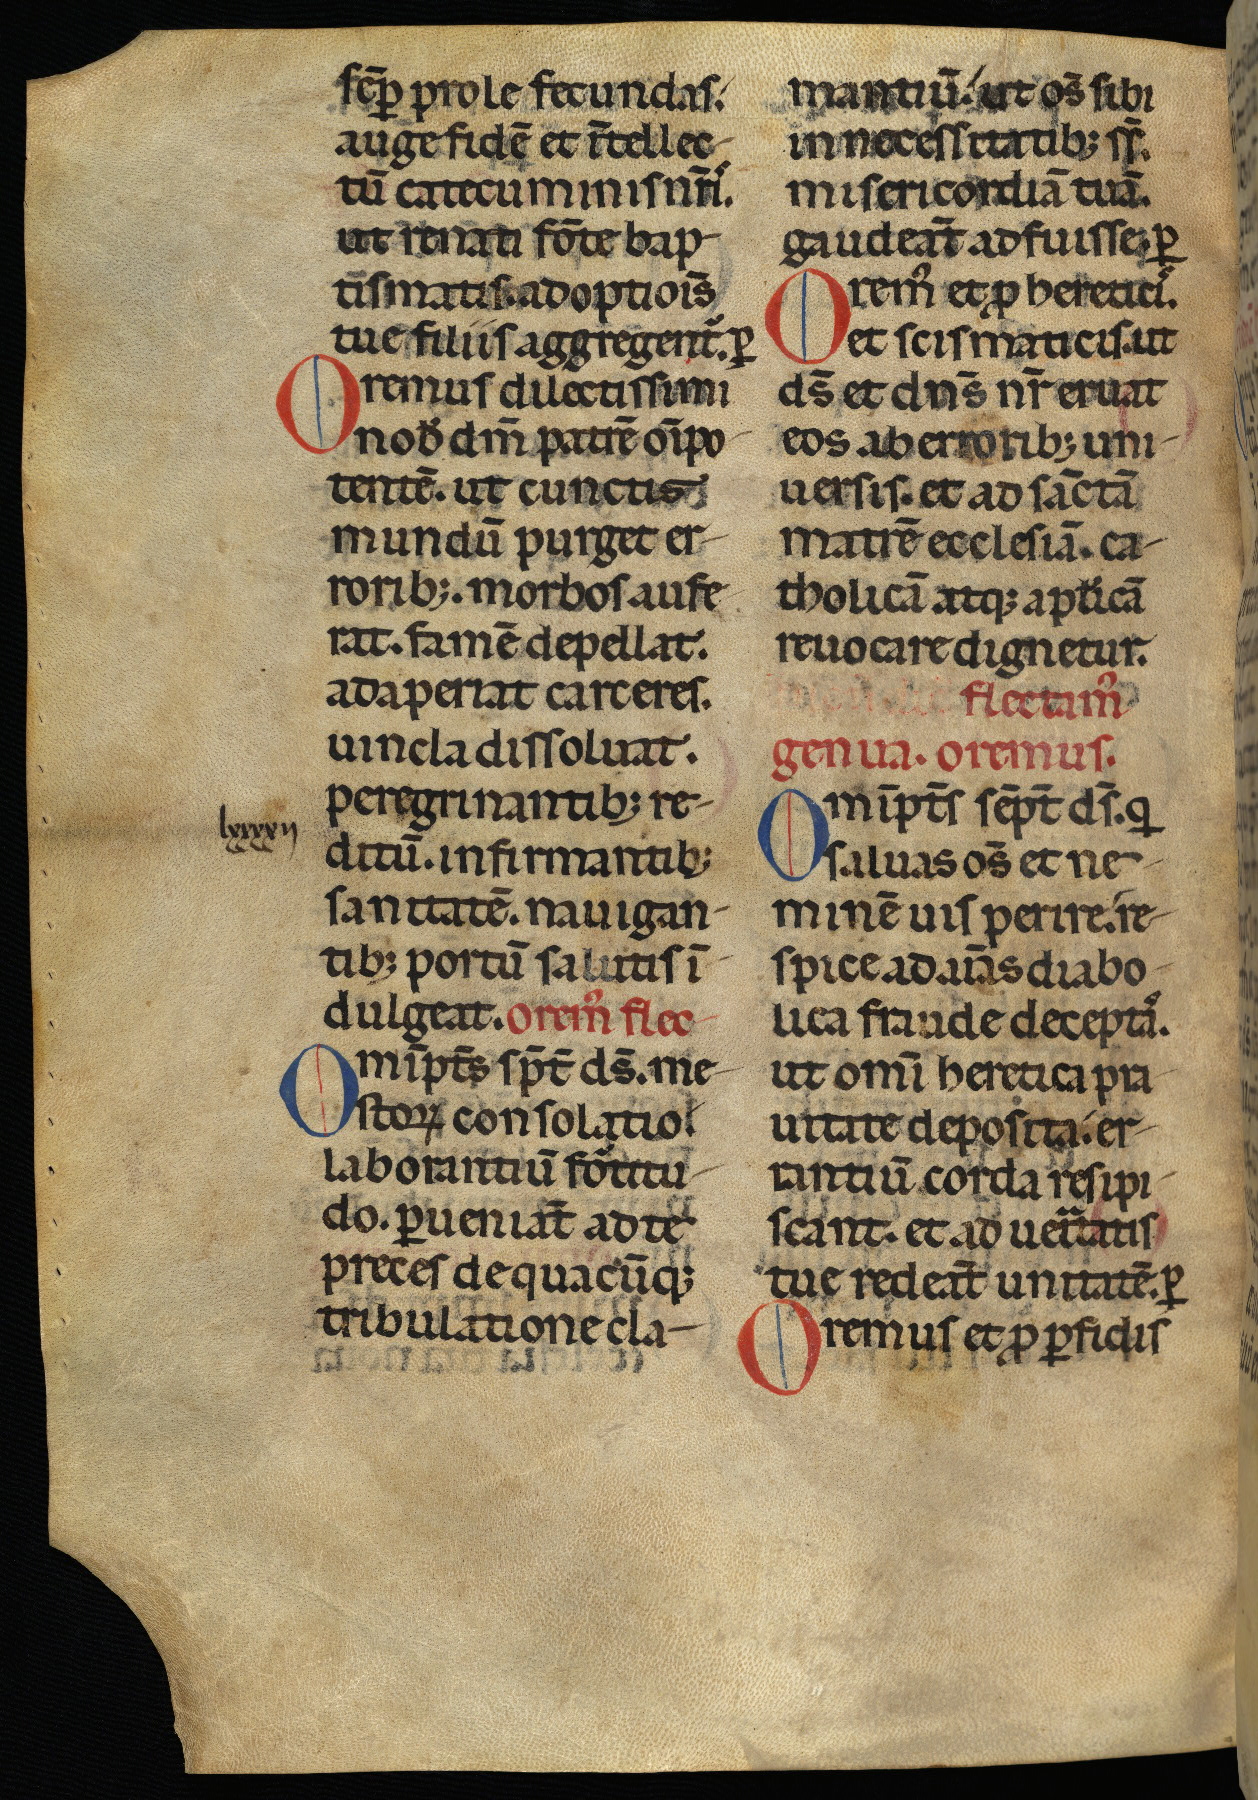 sēꝑ prole fecundas.
auge fidē et ītellec-
tū catecuminis nr̄i.
ut renati fōte bap-
tismatis. adoptiōis
tue filiis aggregent᷑. ꝑ
Oremus dilectissimi
nob̄ dm̄ patrē oīpo-
tentē. ut cunctis
mundū purget er-
rorib;. morbos aufe-
rat. famē depellat.
adaperiat carceres.
uincla dissoluat.
peregrinantib; re-
lxxxxii
ditū. infirmantib;
sanitatē. nauigan-
tib; portū salutis ī-
dulgeat. orem᷒ flec-
Omīpt̄s sp̄t̄ ds̄. me-
stoꝝ consolatio.
laborantiū fortitu-
do. ꝑueniāt ad te
preces de quacūq;
tribulatione cla-
mantiū. ut os̄ sibi
in necessitatib; ss̄.
misericordiā tuā.
gaudeāt adfuisse. ꝑ
Orem᷒ et ꝓ heretici᷒.
et scismaticis. ut
ds̄ et dn̄s nr̄ eruat
eos ab errorib; uni-
uersis. et ad sāctā
matrē ecclesiā. ca-
tholicā atq; apl̄icā
reuocare dignetur.
flectam᷒
genua. oremus.
Omīpt̄s sēpt̄ ds̄. q
saluas os̄ et ne-
minē uis perire. re-
spice ad aīas diabo-
lica fraude decepta᷒.
ut omī heretica pra-
uitate deposita. er-
rantiū corda resipi-
scant. et ad ueritatis
tue redeāt unitatē. ꝑ
Oremus et ꝓ ꝑfidis